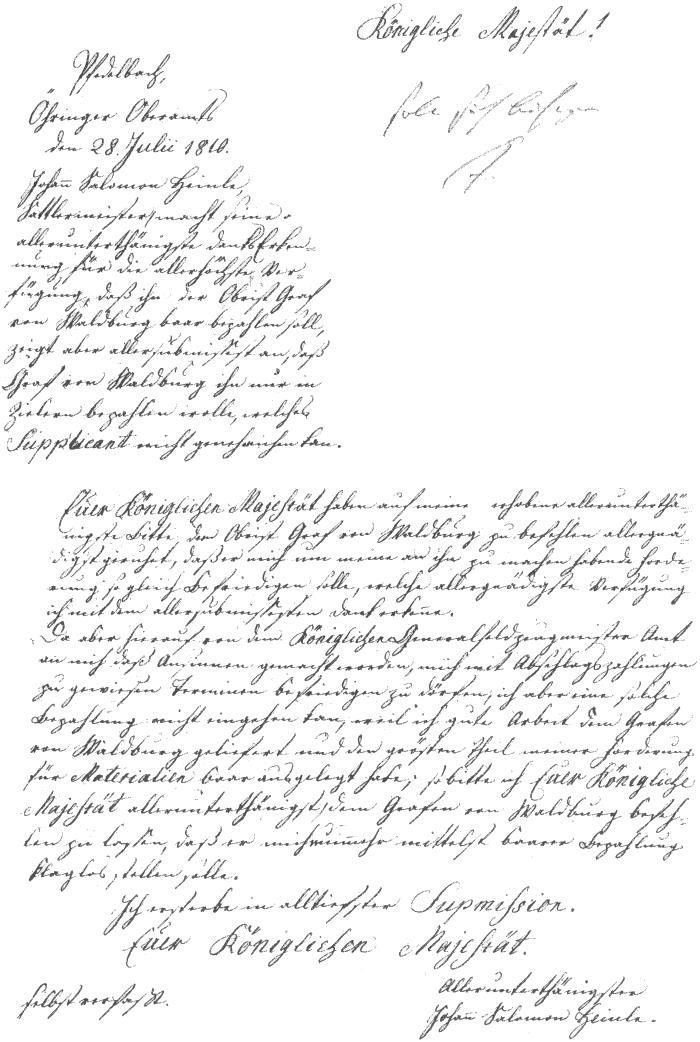 Königliche Majestät!
Pfedelbach,
Öhringer Oberamts
den 28. Julii 1810.
soll sich
F.
Johann Salomon Heinle,
Sattlermeister, macht seine
allerunterthänigste danksErken-
nung für die allerhöchste Ver-
fügung, daß ihn der Obrist Graf
von Waldburg baar bezahlen soll,
zeigt aber allersubmissest an, daß
Graf von Waldburg ihn nur in
Zielern bezahlen wolle, welches
Supplicant nicht genehmichen kan.
Euer Königlichen Majestät haben auf meine erhobene allerunterthä-
nigste Bitte dem Obrist Graf von Waldburg zu befehlen allergnä-
digst geruhet, daß er mich um meine an ihn zu machen habende Forde-
rung so gleich befriedigen solle, welche allergnädigste Verfügung
ich mit dem allersubmissesten Dank erkenne.
Da aber hierauf von dem Königlichen Generalfeldzeugmeister Amt
an mich daß Ansinnen gemacht worden, mich mit Abschlagszahlungen
zu gewiesen Terminen befriedigen zu dörfen, ich aber eine solche
Bezahlung nicht eingehen kan, weil ich gute Arbeit dem Grafen
von Waldburg geliefert und den grösten Theil meiner Forderung
für Materialien baar ausgelegt habe; so bitte ich Euer Königliche
Majestät allerunterthänigst, dem Grafen von Waldburg befeh-
len zu lassen, daß er mich nunmehr mittelst baarer Bezahlung
klaglos stellen solle.
Ich ersterbe in alltiefster Supmission.
Euer Königlichen Majestät.
selbst verfasst.
Allerunterthänigster
Johann Salomon Heinle.